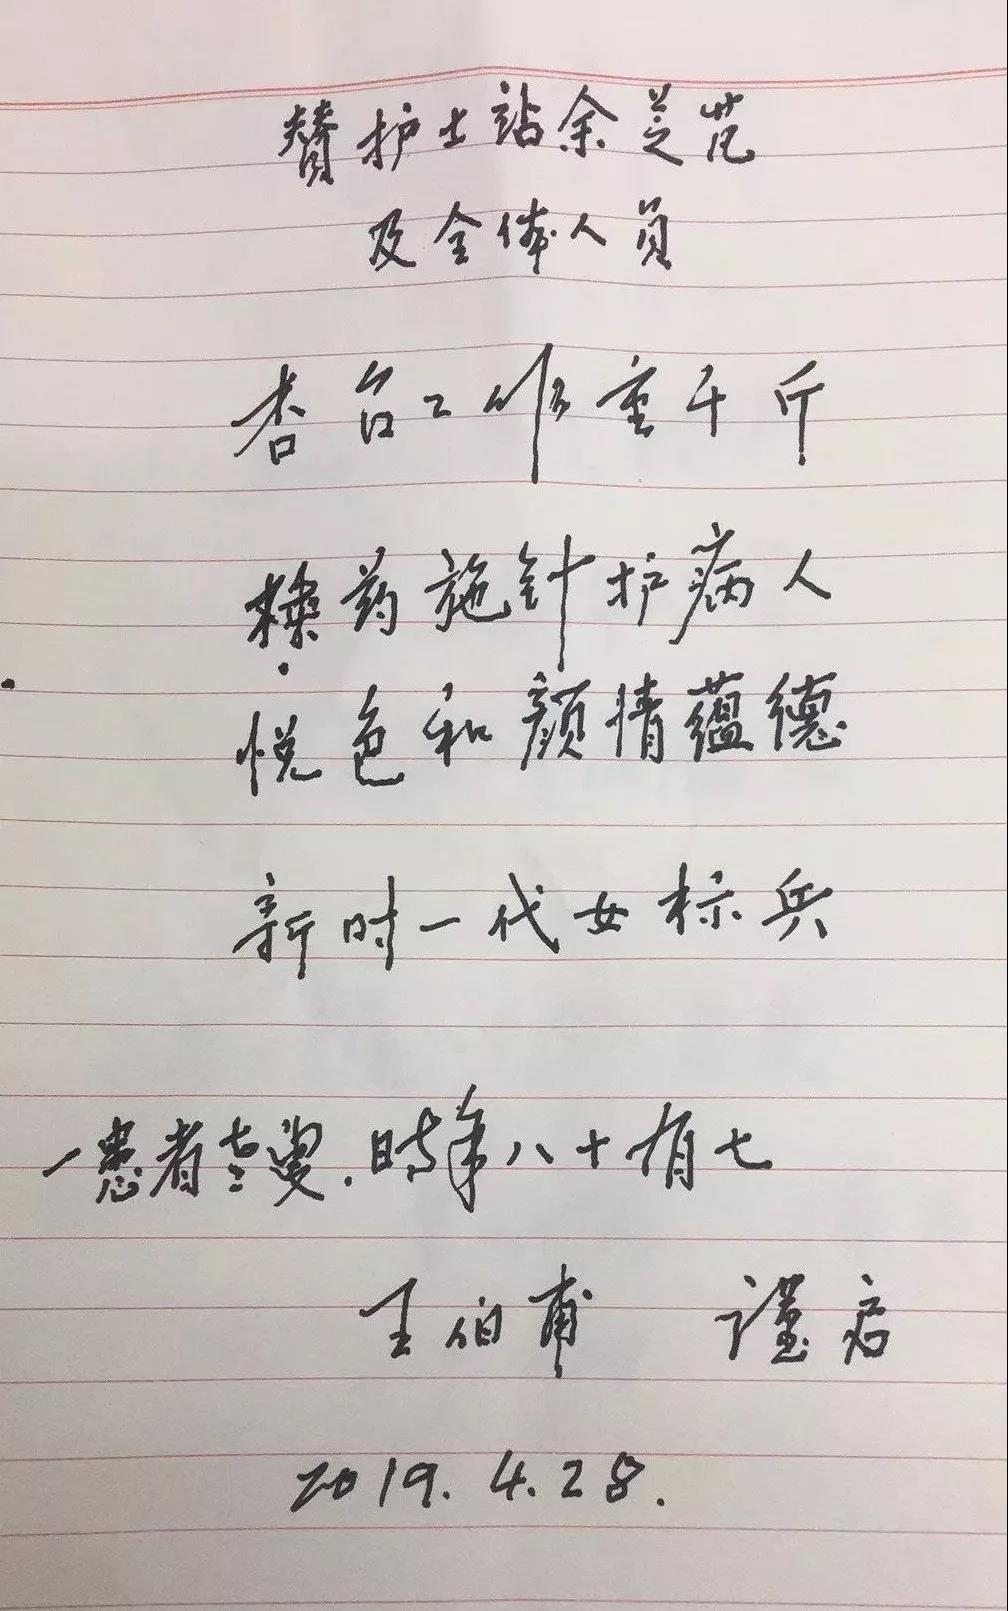 赞护士站余芝范
及全体人员
杏台工作重千斤
操药施针护病人
悦色和颜情蕴德
新时一代女标兵
一患者老叟.时年八十有七
王伯甫 谨启
2019.4.28.